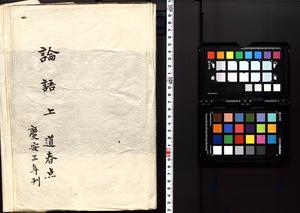 論語上 道春点
慶安五年刊